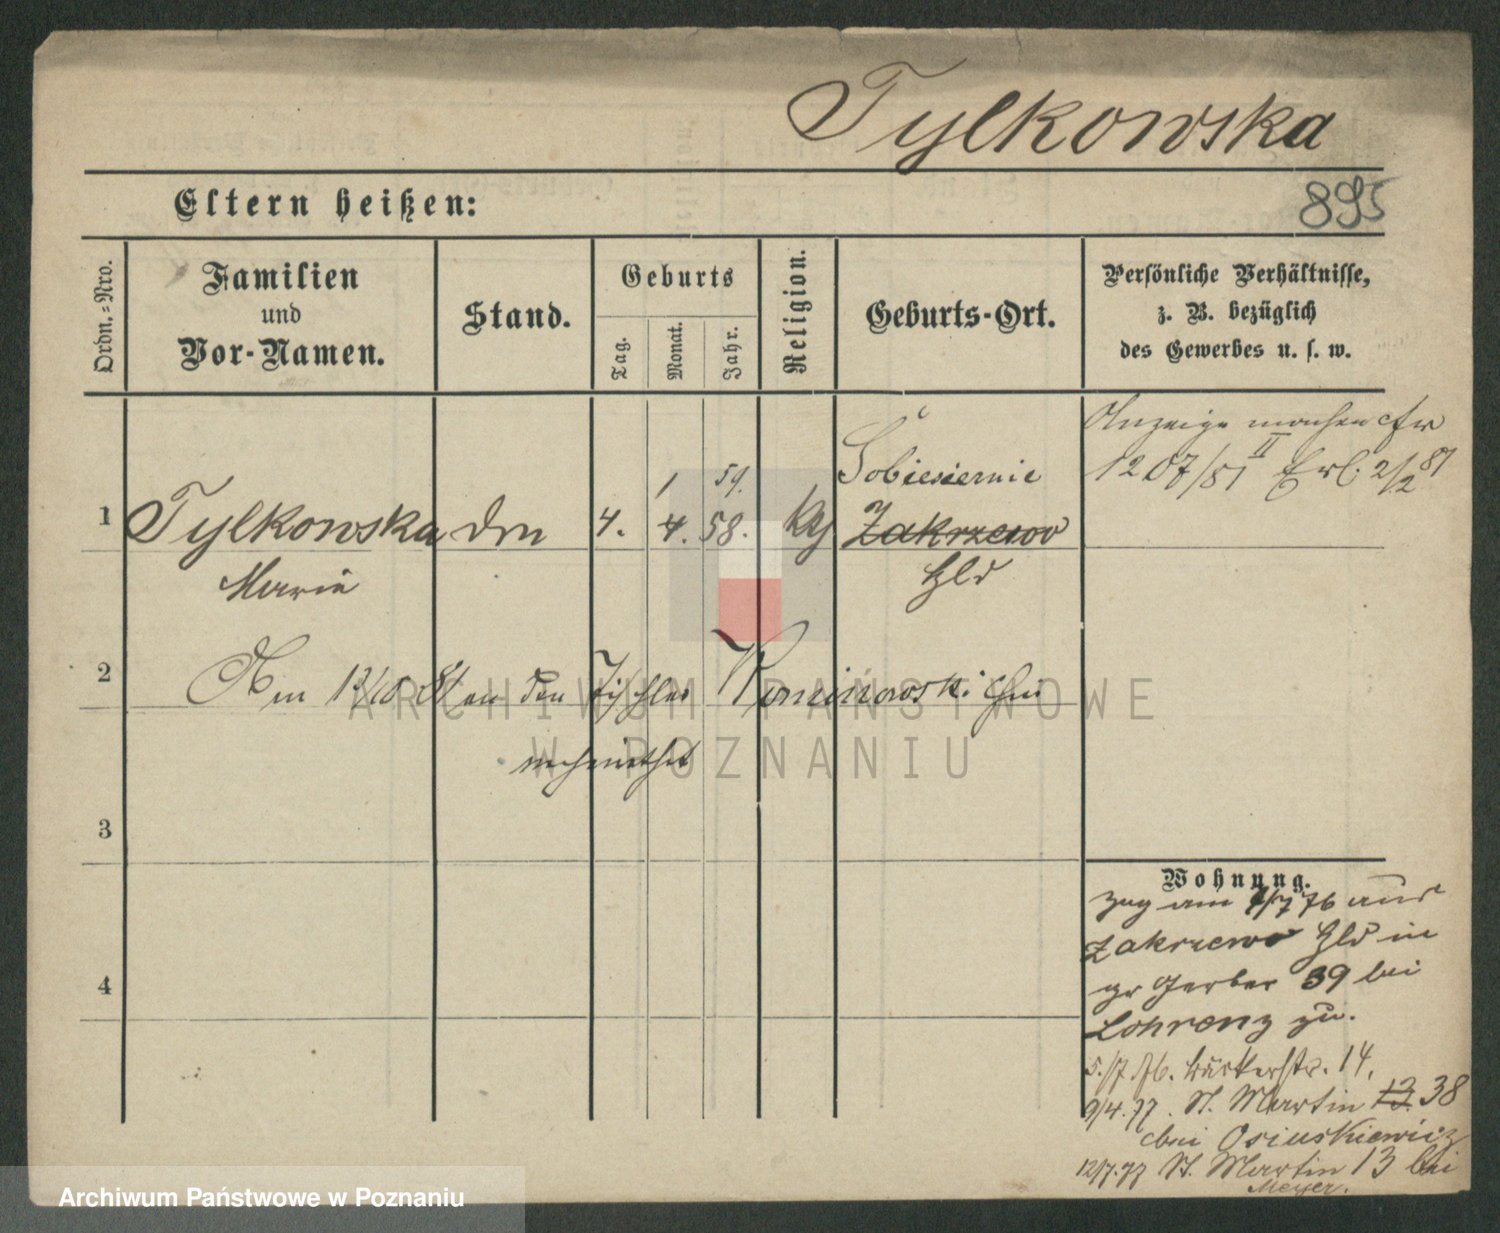 Tylkowska
895
Eltern heißen:
Ordn.-Nro.
Familien
und
Vor-Namen.
Stand.
Geburts
Tag.
Monat.
Jahr.
Religion.
Geburts-Ort.
Persönliche Verhältnisse,
z. B. bezüglich
des Gewerbes u. s. w.
Anzeige machen cfr
1207/81 II Erl. 2/2 81
1
Tylkowska
Marie
4.
1
4.
59.
58.
Sobiesiernie
Zakrzewo
Hld
2
Am 81 an den Tischler
verheirathet
3
4
Wohnung.
zug am 1/7 76 aus
Zakrzewo Hld in
gr Gerber 39 bei
Lohrenz zu.
5./7.76. Bäckerstr. 14,
9/4.77. St. Martin 13 38
bei Osiuskiewicz
12/7.77 St. Martin 13 bei
Meyer.
ARCHIWUM PAŃSTWOWE
W POZNANIU
Archiwum Państwowe w Poznaniu